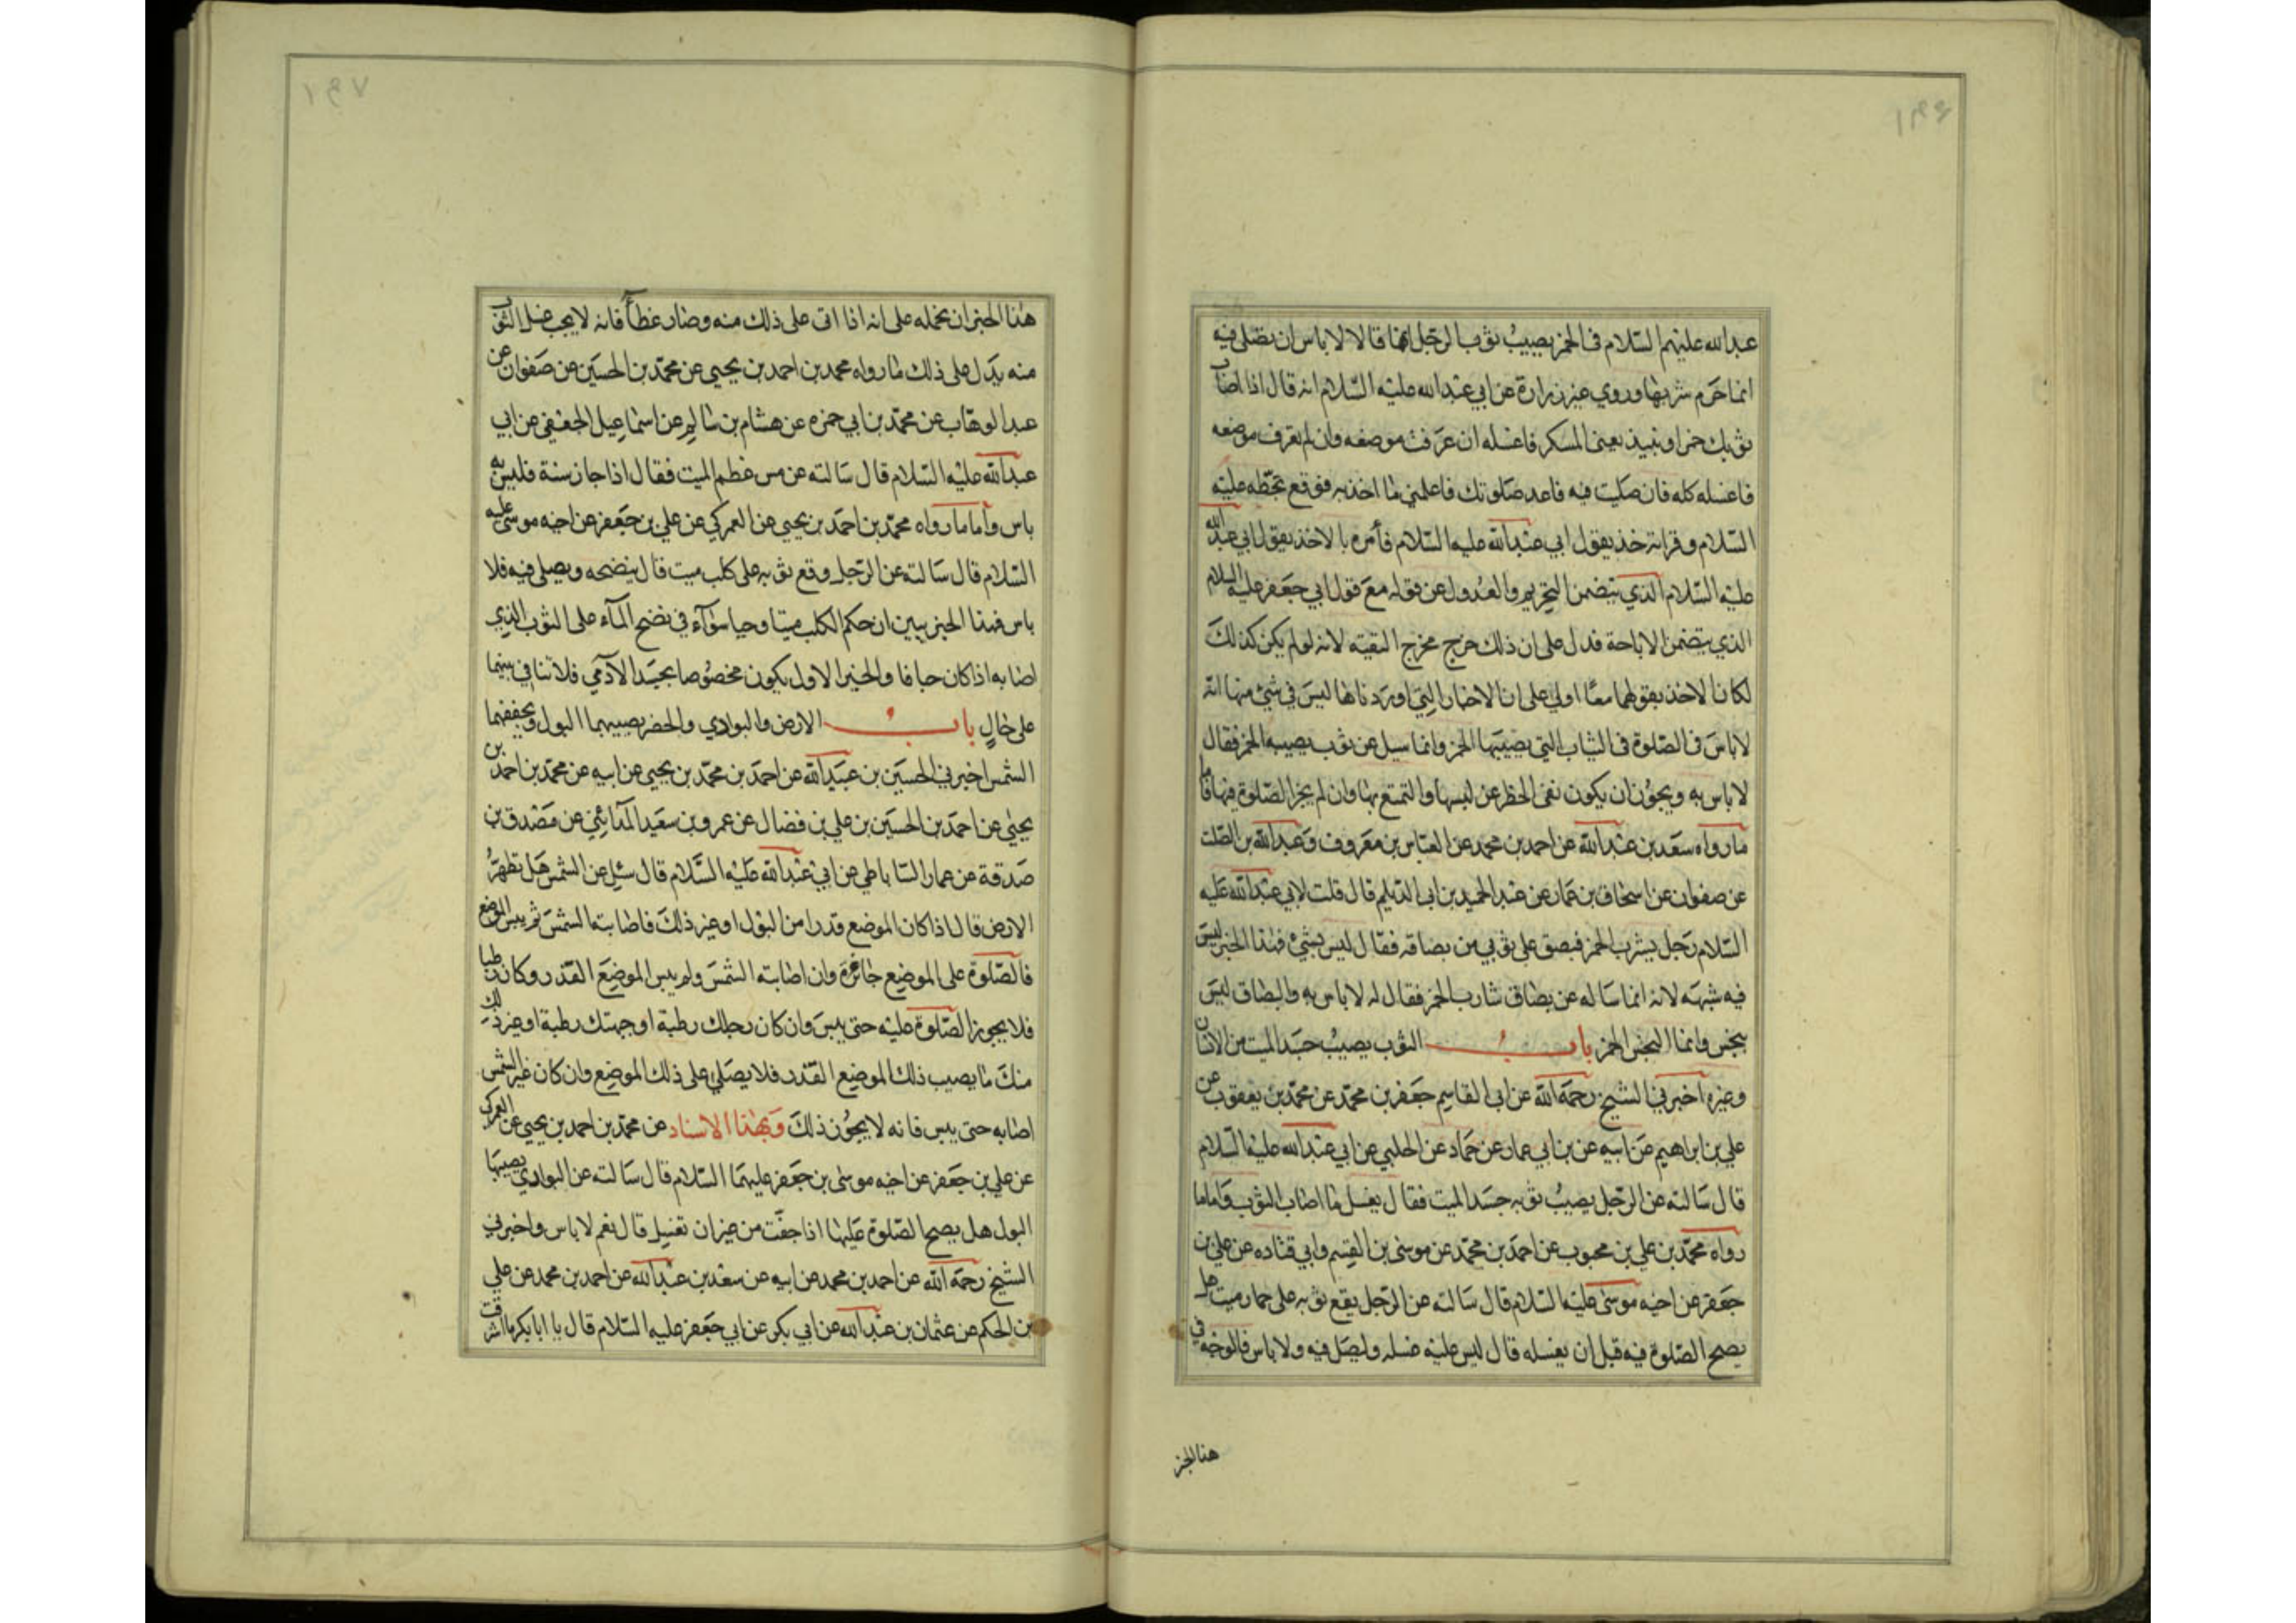 عبدالله عليهم السلام في الخمر يصيب ثوب الرجل انهما قالا لا باس ان يصلي فيه
انما حرم شربها وروي عن زرارة عن ابي عبدالله عليه السلام انه قال اذا اصاب
ثوبك خمر او نبيذ يعني المسكر فاغسله ان عرفت موضعه وان لم تعرف موضعه
فاغسله كله فان صليت فيه فاعد صلوتك فاعلمني ما اخذ به فوقع بخطه عليه
السلام وقراته خذ بقول ابي عبدالله عليه السلام فأمره بالاخذ بقول ابي عبدالله
عليه السلام الذي يتضمن التحريم والعدول عن قوله مع قول ابي جعفر عليه السلام
الذي يتضمن الاباحة فدل على ان ذلك خرج مخرج التقيه لانه لو لم يكن كذلك
لكان الاخذ بقولهما معًا اولي على ان الاخبار التي اوردناها ليس في شئ منها انه
لا باس في الصلوة في الثياب التي يصيبها الخمر وانما سيل عن ثوب يصيبه الخمر فقال
لا باس به ويجوز ان يكون نفى الحظر عن لبسها والتمتع بها وان لم يجز الصلوة فيها فاما
ما رواه سعد بن عبدالله عن احمد بن محمد عن العباس بن معروف وعبدالله بن الصلت
عن صفوان عن اسحاق بن عمار عن عبد الحميد بن ابي الديلم قال قلت لابي عبدالله عليه
السلام رجل يشرب الخمر فبصق على ثوبي من بصاقه فقال ليس بشئ فهذا الخبر ليس
فيه شبهه لانه انما ساله عن بصاق شارب الخمر فقال له لا باس به والبصاق ليس
بنجس وانما النجس الخمر باب الثوب يصيب جسد الميت من الانسان
وغيره اخبرني الشيخ رحمة الله عن ابي القاسم جعفر بن محمد عن محمد بن يعقوب عن
علي بن ابراهيم عن ابيه عن بن ابي عمار عن حماد عن الحلبي عن ابي عبدالله عليه السلام
قال سالته عن الرجل يصيب ثوبه جسد الميت فقال يغسل ما اصاب الثوب فاما ما
رواه محمد بن علي بن محبوب عن احمد بن محمد عن موسى بن القسم وابي قتاده عن علي بن
جعفر عن اخيه موسى عليه السلام قال سالته عن الرجل يقع ثوبه على حمار ميت هل
يصح الصلوة فيه قبل ان يغسله قال ليس عليه غسله وليصل فيه ولا باس فالوجه في
هذا الخبر
هذا الخبر ان نحمله على انه اذا اتى على ذلك سنه وصار عظاما فانه لا يجب غسل الثوب
منه يدل على ذلك ما رواه محمد بن احمد بن يحيى عن محمد بن الحسين عن صفوان عن
عبد الوهاب عن محمد بن ابي حمزه عن هشام بن سالم عن اسماعيل الجعفي عن ابي
عبدالله عليه السلام قال سالته عن مس عظم الميت فقال اذا جاز سنة فليس به
باس واما ما رواه محمد بن احمد بن يحيى عن العمركي عن علي بن جعفر عن اخيه موسى عليه
السلام قال سالته عن الرجل وقع ثوبه على كلب ميت قال ينضحه ويصلي فيه فلا
باس فهذا الخبر يبين ان حكم الكلب ميتا وحيا سوآء في نضح المآء على الثوب الذي
اصابه اذا كان جافا والخبر الاول يكون مخصوصا بجسد الآدمي فلا تنافي بينهما
على حالٍ باب الارض والبوادي والحضر يصيبهما البول ويجففهما
الشمس اخبرني الحسين بن عبيدالله عن احمد بن محمد بن يحيى عن ابيه عن محمد بن احمد بن
يحيى عن احمد بن الحسين بن علي بن فضال عن عمرو بن سعيد المدايني عن مصدق بن
صدقة عن عمار الساباطي عن ابي عبدالله عليه السلام قال سئل عن الشمس هل تطهر
الارض قال اذا كان الموضع قذرا من البول او غير ذلك فاصابته الشمس ثم يبس الموضع
فالصلوة على الموضع جائزة وان اصابته الشمس ولم ييبس الموضع القذر وكان رطبا
فلا يجوز الصلوة عليه حتى ييبس وان كان رجلك رطبة او جبهتك رطبة او غير ذلك
منك ما يصيب ذلك الموضع القذر فلا يصلي على ذلك الموضع وان كان غير الشمس
اصابه حتى ييبس فانه لا يجوز ذلك وبهذا الاسناد عن محمد بن احمد بن يحيى عن العمركي
عن علي بن جعفر عن اخيه موسى بن جعفر عليهما السلام قال سالته عن البوادي يصيبها
البول هل يصح الصلوة عليها اذا جفت من غير ان تغسل قال نعم لا باس واخبرني
الشيخ رحمة الله عن احمد بن محمد عن ابيه عن سعد بن عبدالله عن احمد بن محمد عن علي
بن الحكم عن عثمان بن عبدالله عن ابي بكر عن ابي جعفر عليه السلام قال يا ابا بكر ما اشرقت